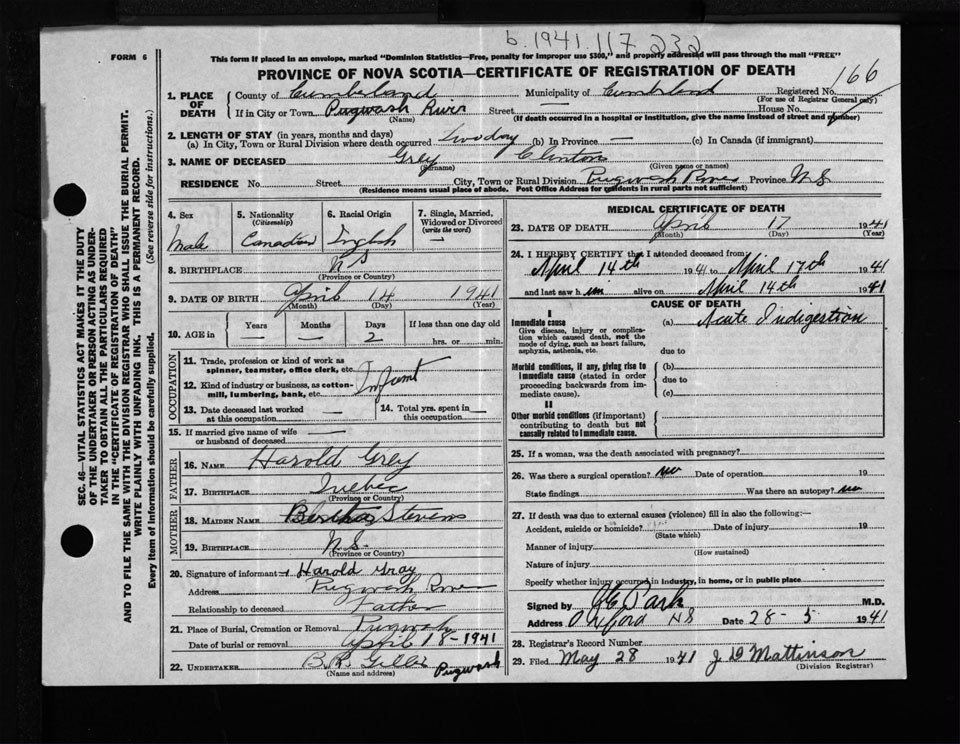 b. 1941. 117. 232
FORM 6
This form if placed in an envelope, marked "Dominion Statistics—Free, penalty for improper use $300," and properly addressed will pass through the mail "FREE"
PROVINCE OF NOVA SCOTIA—CERTIFICATE OF REGISTRATION OF DEATH
166
1. PLACE OF DEATH
County of Cumberland Municipality of Cumberland Registered No.
(For use of Registrar General only)
If in City or Town Pugwash River Street — House No.
(Name) (If death occurred in a hospital or institution, give the name instead of street and number)
2. LENGTH OF STAY (in years, months and days)
(a) In City, Town or Rural Division where death occurred Two day (b) In Province — (c) In Canada (if immigrant)
3. NAME OF DECEASED Grey Clinton
(Surname) (Given name or names)
RESIDENCE No. Street City, Town or Rural Division Pugwash River Province N.S
(Residence means usual place of abode. Post Office Address for residents in rural parts not sufficient)
4. Sex Male
5. Nationality (Citizenship) Canadian
6. Racial Origin English
7. Single, Married, Widowed or Divorced (write the word) —
8. BIRTHPLACE N S
(Province or Country)
9. DATE OF BIRTH April 14 1941
(Month) (Day) (Year)
10. AGE in Years — Months — Days 2 If less than one day old hrs. or min.
OCCUPATION
11. Trade, profession or kind of work as spinner, teamster, office clerk, etc.
12. Kind of industry or business, as cotton-mill, lumbering, bank, etc. Infant
13. Date deceased last worked at this occupation —
14. Total yrs. spent in this occupation —
15. If married give name of wife or husband of deceased —
FATHER
16. NAME Harold Grey
17. BIRTHPLACE Quebec
(Province or Country)
MOTHER
18. MAIDEN NAME Bertha Stevens
19. BIRTHPLACE N.S.
(Province or Country)
20. Signature of informant Harold Gray
Address Pugwash River
Relationship to deceased Father
21. Place of Burial, Cremation or Removal Pugwash
Date of burial or removal April 18-1941
22. UNDERTAKER B.R. Gillis Pugwash
(Name and address)
MEDICAL CERTIFICATE OF DEATH
23. DATE OF DEATH April 17 1941
(Month) (Day) (Year)
24. I HEREBY CERTIFY that I attended deceased from
April 14th 1941 to April 17th 1941
and last saw him alive on April 14th 1941
CAUSE OF DEATH
I
Immediate cause (a) Acute Indigestion
Give disease, injury or complication which caused death, not the mode of dying, such as heart failure, asphyxia, asthenia, etc.
due to
Morbid conditions, if any, giving rise to immediate cause (stated in order proceeding backwards from immediate cause).
(b)
due to
(c)
II
Other morbid conditions (if important) contributing to death but not causally related to immediate cause.
25. If a woman, was the death associated with pregnancy?
26. Was there a surgical operation? no Date of operation 19
State findings Was there an autopsy? no
27. If death was due to external causes (violence) fill in also the following:—
Accident, suicide or homicide? Date of injury 19
(State which)
Manner of injury
(How sustained)
Nature of injury
Specify whether injury occurred in industry, in home, or in public place
Signed by Park M.D.
Address Oxford NS Date 28-5 1941
28. Registrar's Record Number
29. Filed May 28 1941 J D Mattinson
(Division Registrar)
SEC. 46—VITAL STATISTICS ACT MAKES IT THE DUTY
OF THE UNDERTAKER OR PERSON ACTING AS UNDER-
TAKER TO OBTAIN ALL THE PARTICULARS REQUIRED
IN THE "CERTIFICATE OF REGISTRATION OF DEATH"
AND TO FILE THE SAME WITH THE DIVISION REGISTRAR WHO SHALL ISSUE THE BURIAL PERMIT.
WRITE PLAINLY WITH UNFADING INK. THIS IS A PERMANENT RECORD.
Every item of information should be carefully supplied. (See reverse side for instructions.)